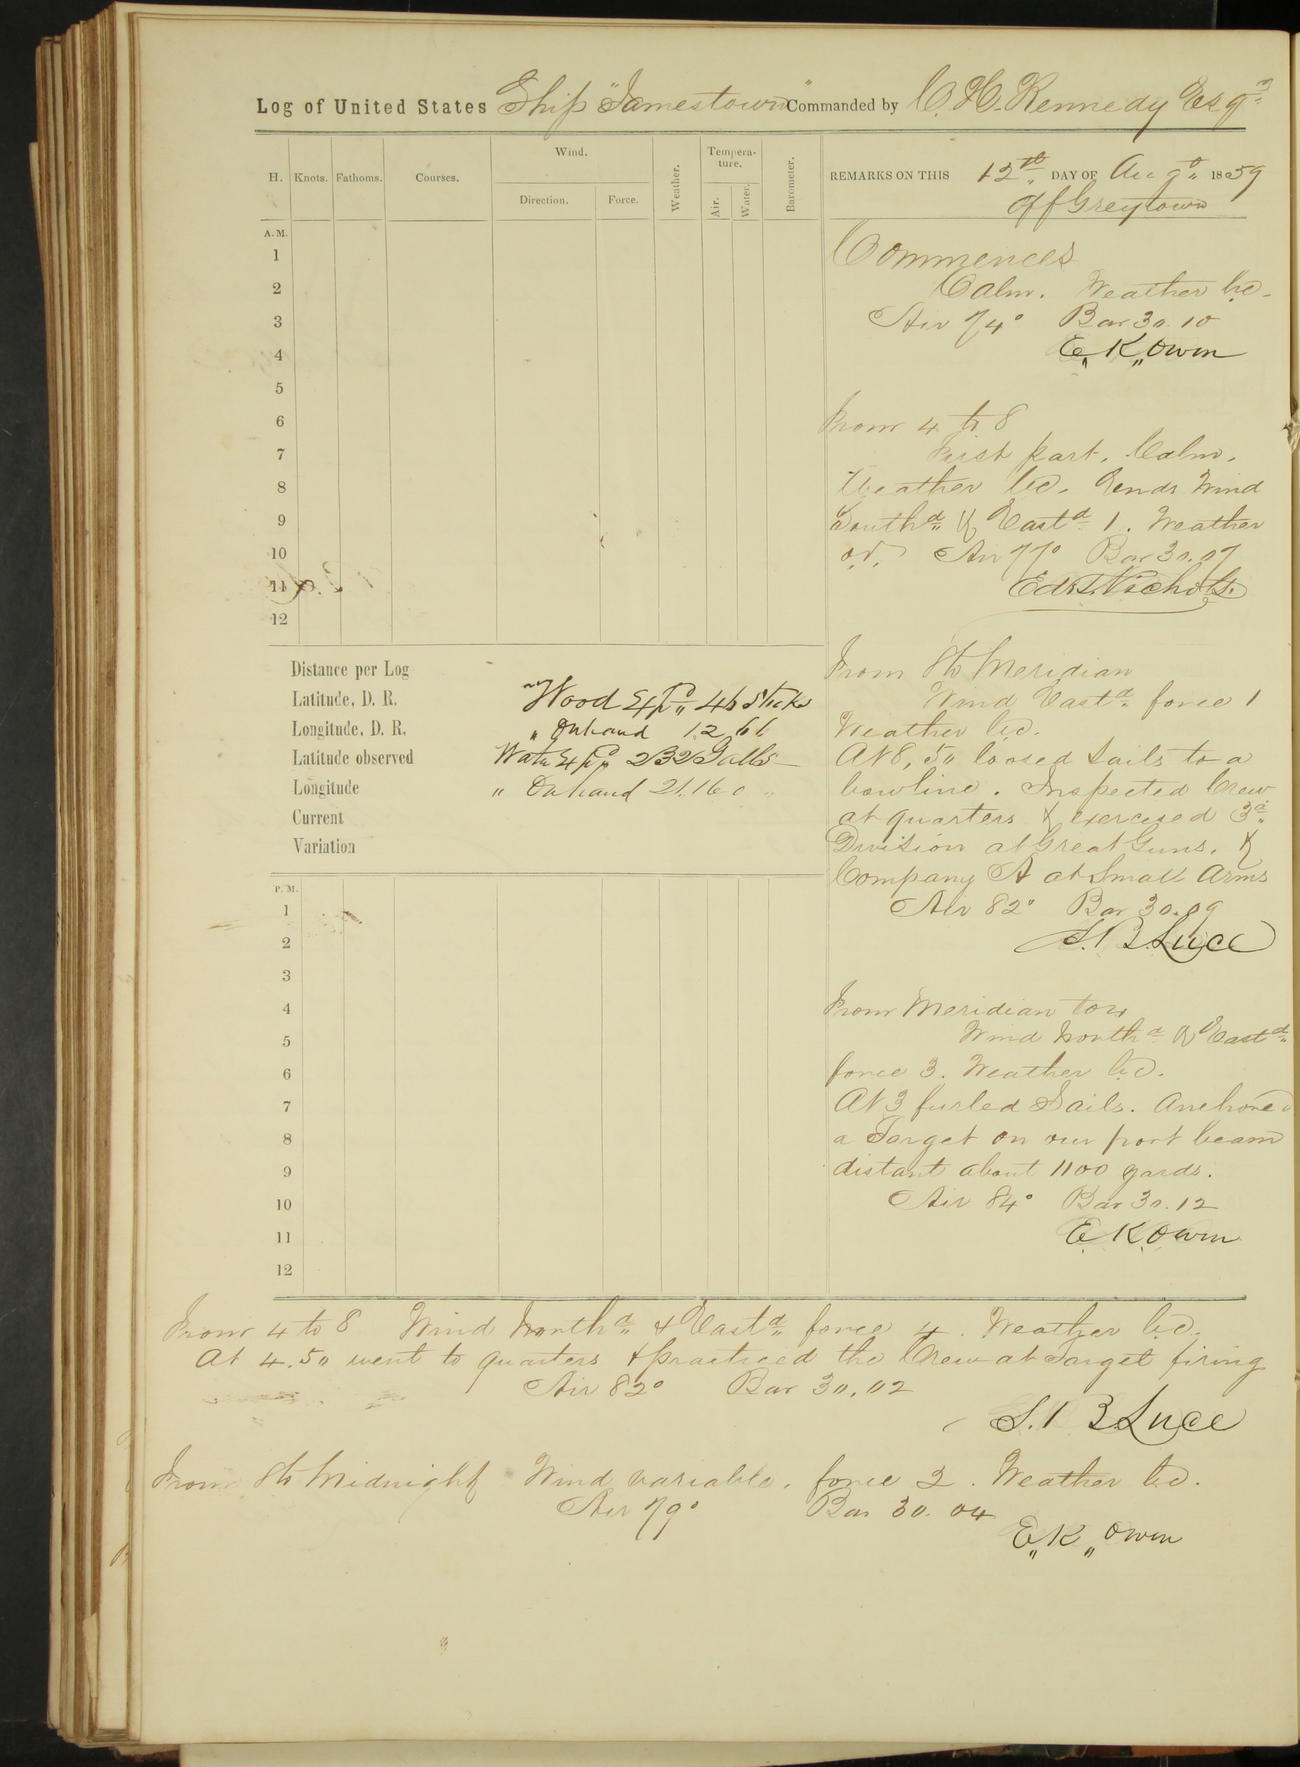 Log of United States Ship "Jamestown" Commanded by C. H. Kennedy Esqr
H. Knots. Fathoms. Courses. Wind. Direction. Force. Weather. Tempera-ture. Air. Water. Barometer.
REMARKS ON THIS 12th DAY OF Augt 1859
off Greytown
A.M.
1
2
3
4
5
6
7
8
9
10
11
12
Commences
Calm. Weather b.c.
Air 74° Bar 30.10
E. K. Owen
From 4 to 8
First part, Calm.
Weather b.c. Ends Wind
Southd & Eastd 1. Weather
Air 77° Bar 30.07
Ed. T. Nichols.
From 8 to Meridian
Wind Eastd force 1
Weather b.c.
At 8,50 loosed sails to a
bowline. Inspected Crew
at quarters & exercised 3d
Division at Great Guns, &
Company A at Small Arms
Air 82° Bar 30.09
S. B. Luce
Distance per Log
Latitude, D. R.
Longitude, D. R.
Latitude observed
Longitude
Current
Variation
Wood Expd 46 Sticks
" On hand 12,66
Water Expd 232 Galls
" On hand 21.160 "
P.M.
1
2
3
4
5
6
7
8
9
10
11
12
From Meridian to 4
Wind Northd & Eastd
force 3. Weather b.c.
At 3 furled Sails. Anchored
a Target on our port beam
distant about 1100 yards.
Air 84° Bar 30.12
E. K. Owen
From 4 to 8 Wind Northd & Eastd force 4. Weather b.c.
At 4.50 went to quarters & practiced the Crew at Target firing
Air 82° Bar 30.02
S. B. Luce
From 8 to Midnight Wind variable, force 2. Weather b.c.
Air 79° Bar 30.04
E. K. Owen